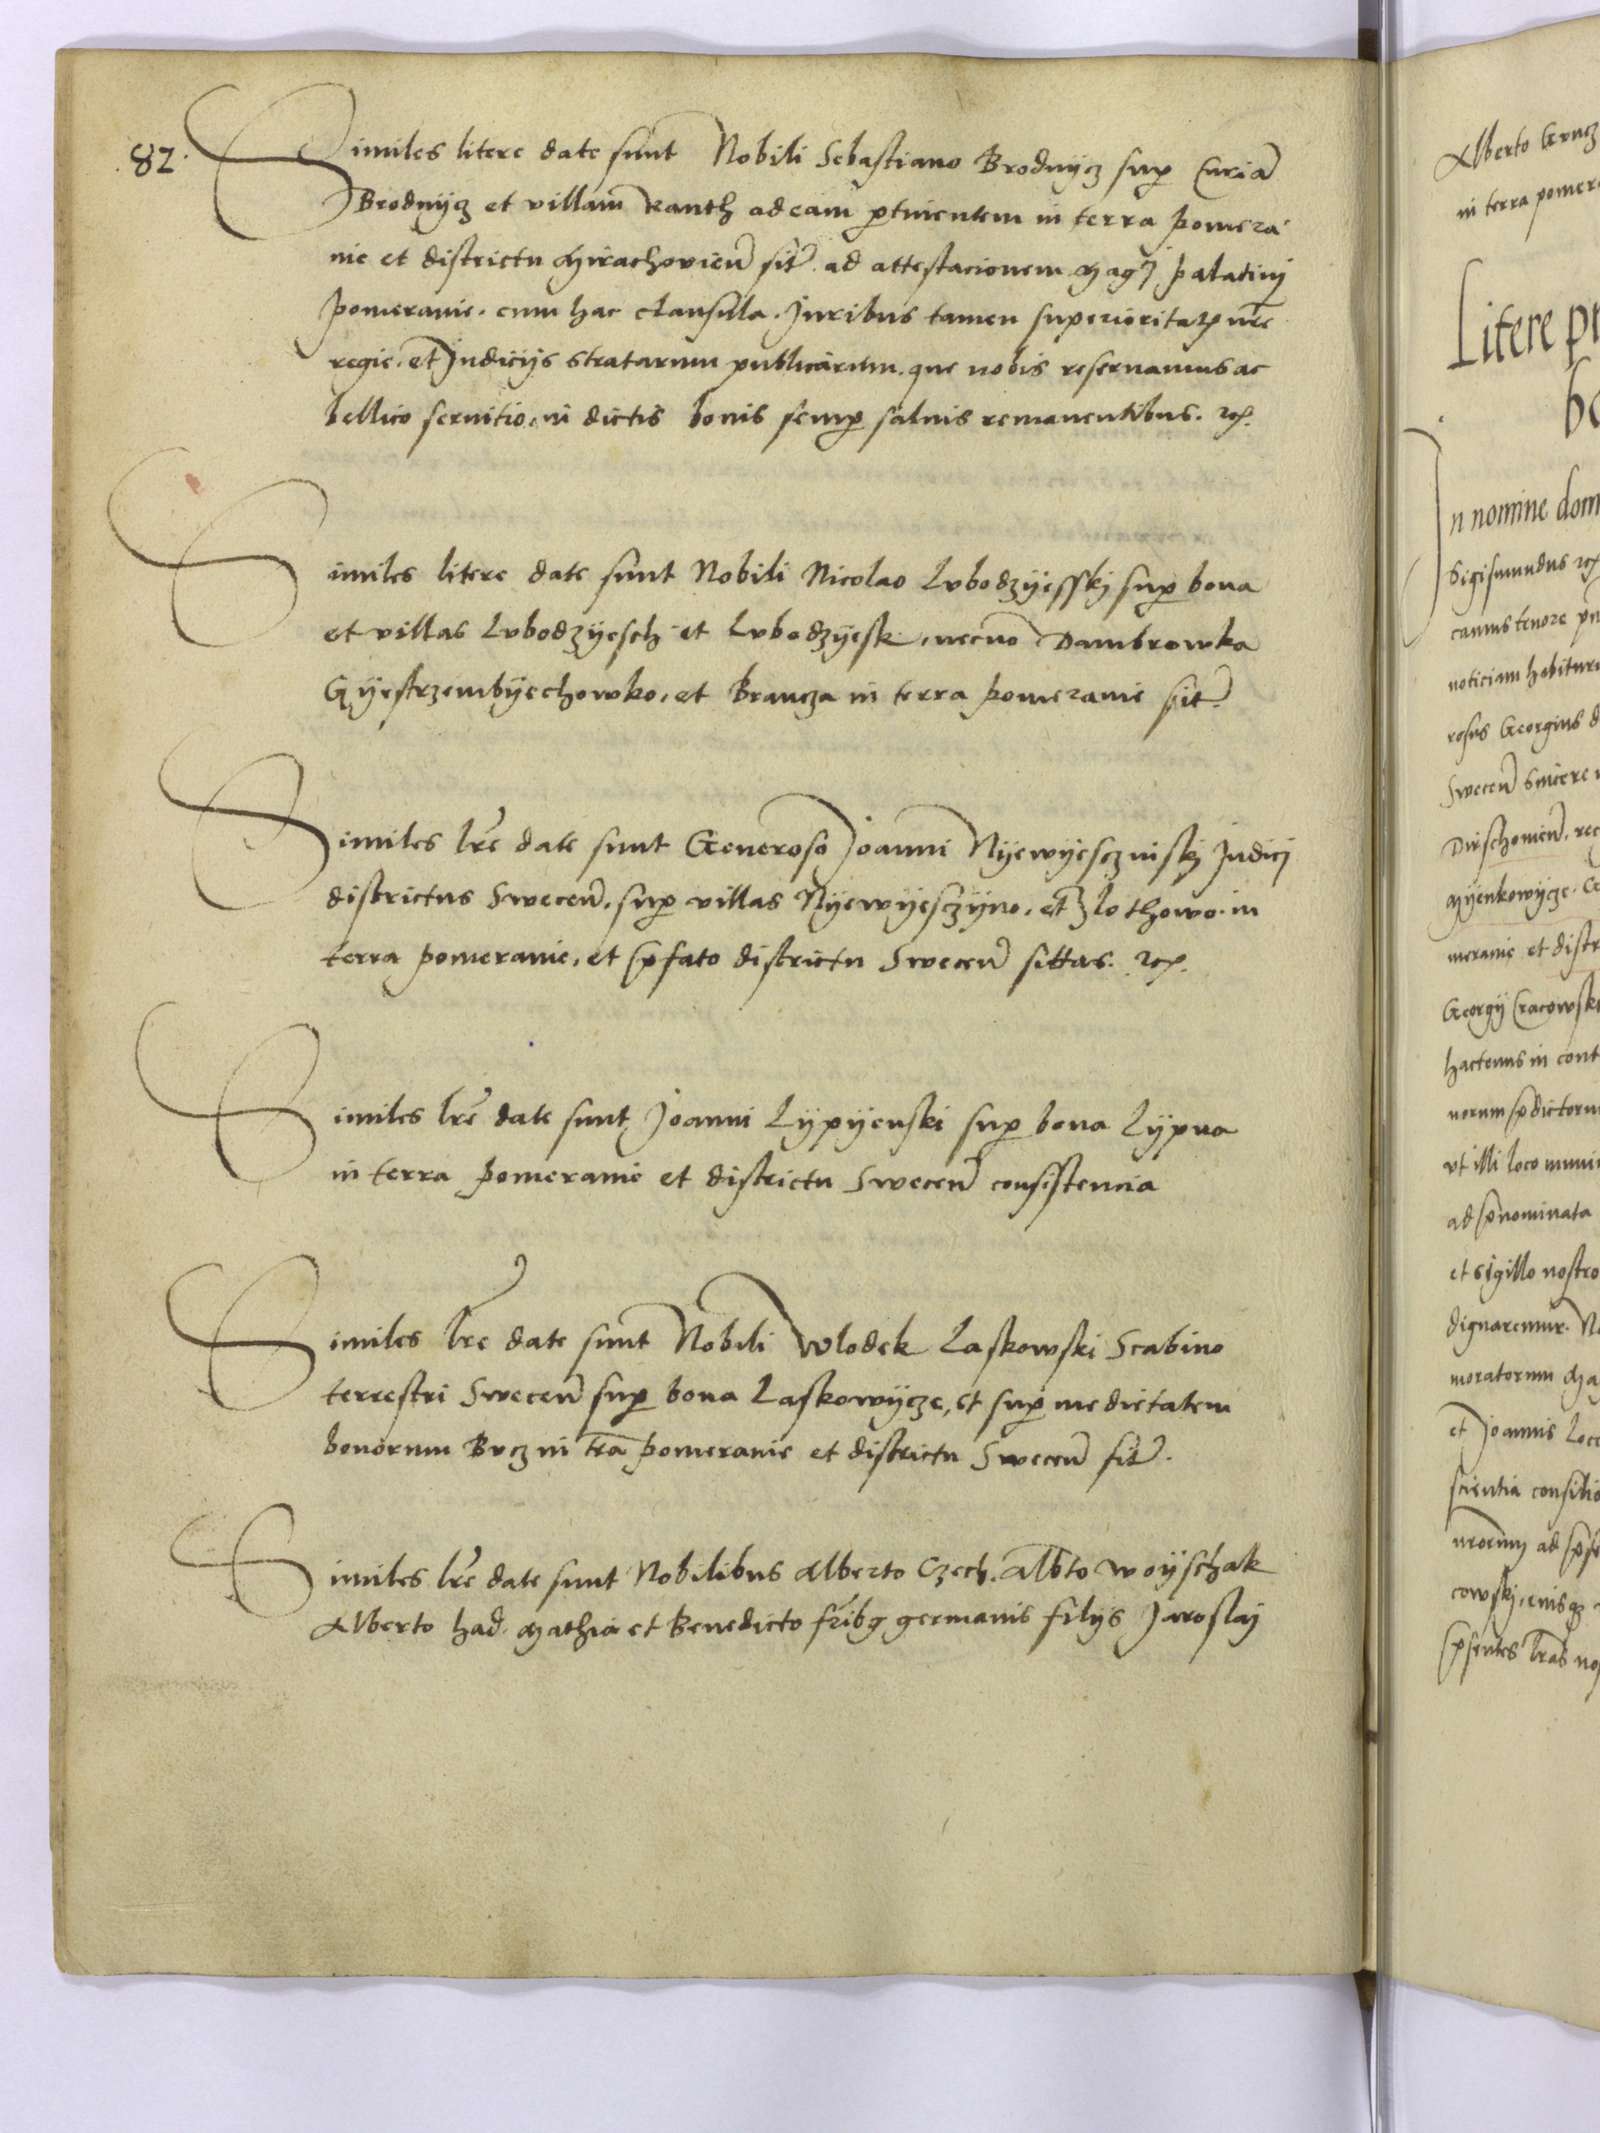 82.
Similes litere date sunt Nobili Sebastiano Brodnycz sup Curiā
Brodnycz et villam Kanth ad eam ptinentem in terra pomera
nie et districtu Mirachovień sit̄. ad attestacionem Magci palatini
pomeranie. cum hac clausula. Juribus tamen superioritatis nr̄e
regie. et Judicijs stratarum publicarum. que nobis reservamus ac
bellico servitio, in dictis bonis semp salvis remanentibus. etc.
Similes litere date sunt Nobili Nicolao Lvbodzyesskj sup bona
et villas Lvbodzyesch et Lvbodzyesk, necno Dambrowka
Gyestrzembyechowko, et Brancza in terra pomeranie sit̄.
Similes lr̄e date sunt Generoso Joanni Nyewyesczinskj Judici
districtus Swecen̄. sup villas Nyewyesczyno, et Zlothowo. in
terra pomeranie, et pfato districtu Swecen̄ sittas. etc.
Similes lr̄e date sunt Joanni Lypyenski sup bona Lypna
in terra pomeranie et districtu Swecen̄ consistencia
Similes lr̄e date sunt Nobili Wlodek Laskowski Scabino
terrestri Swecen̄ sup bona Laskowycze, et sup medietatem
bonorum Bvcz in tr̄a pomeranie et districtu Swecen̄ sit̄.
Similes lr̄e date sunt Nobilibus Alberto Czech. Albto Woyschak
Alberto had. Mathia et Benedicto frībq germanis filijs Jaroslaj
Alberto
in terra pomer
Litere pr
bo
In nomine dom
Sigismundus etc
camus tenore
noticiam habitur
rosus Georgius d
Swecen̄ sincere
Dirschovien̄. re
Myenkowycze.
meranie et distr
Georgy Cracowsk
hactenus in cont
norum pdictoru
vt illi loco muni
ad pnominata
et sigillo nostro
dignaremur. No
moratorum Ma
et Joannis loce
scientia consilio
nrorum ad
cowskj, eiusq
psentes lr̄as no